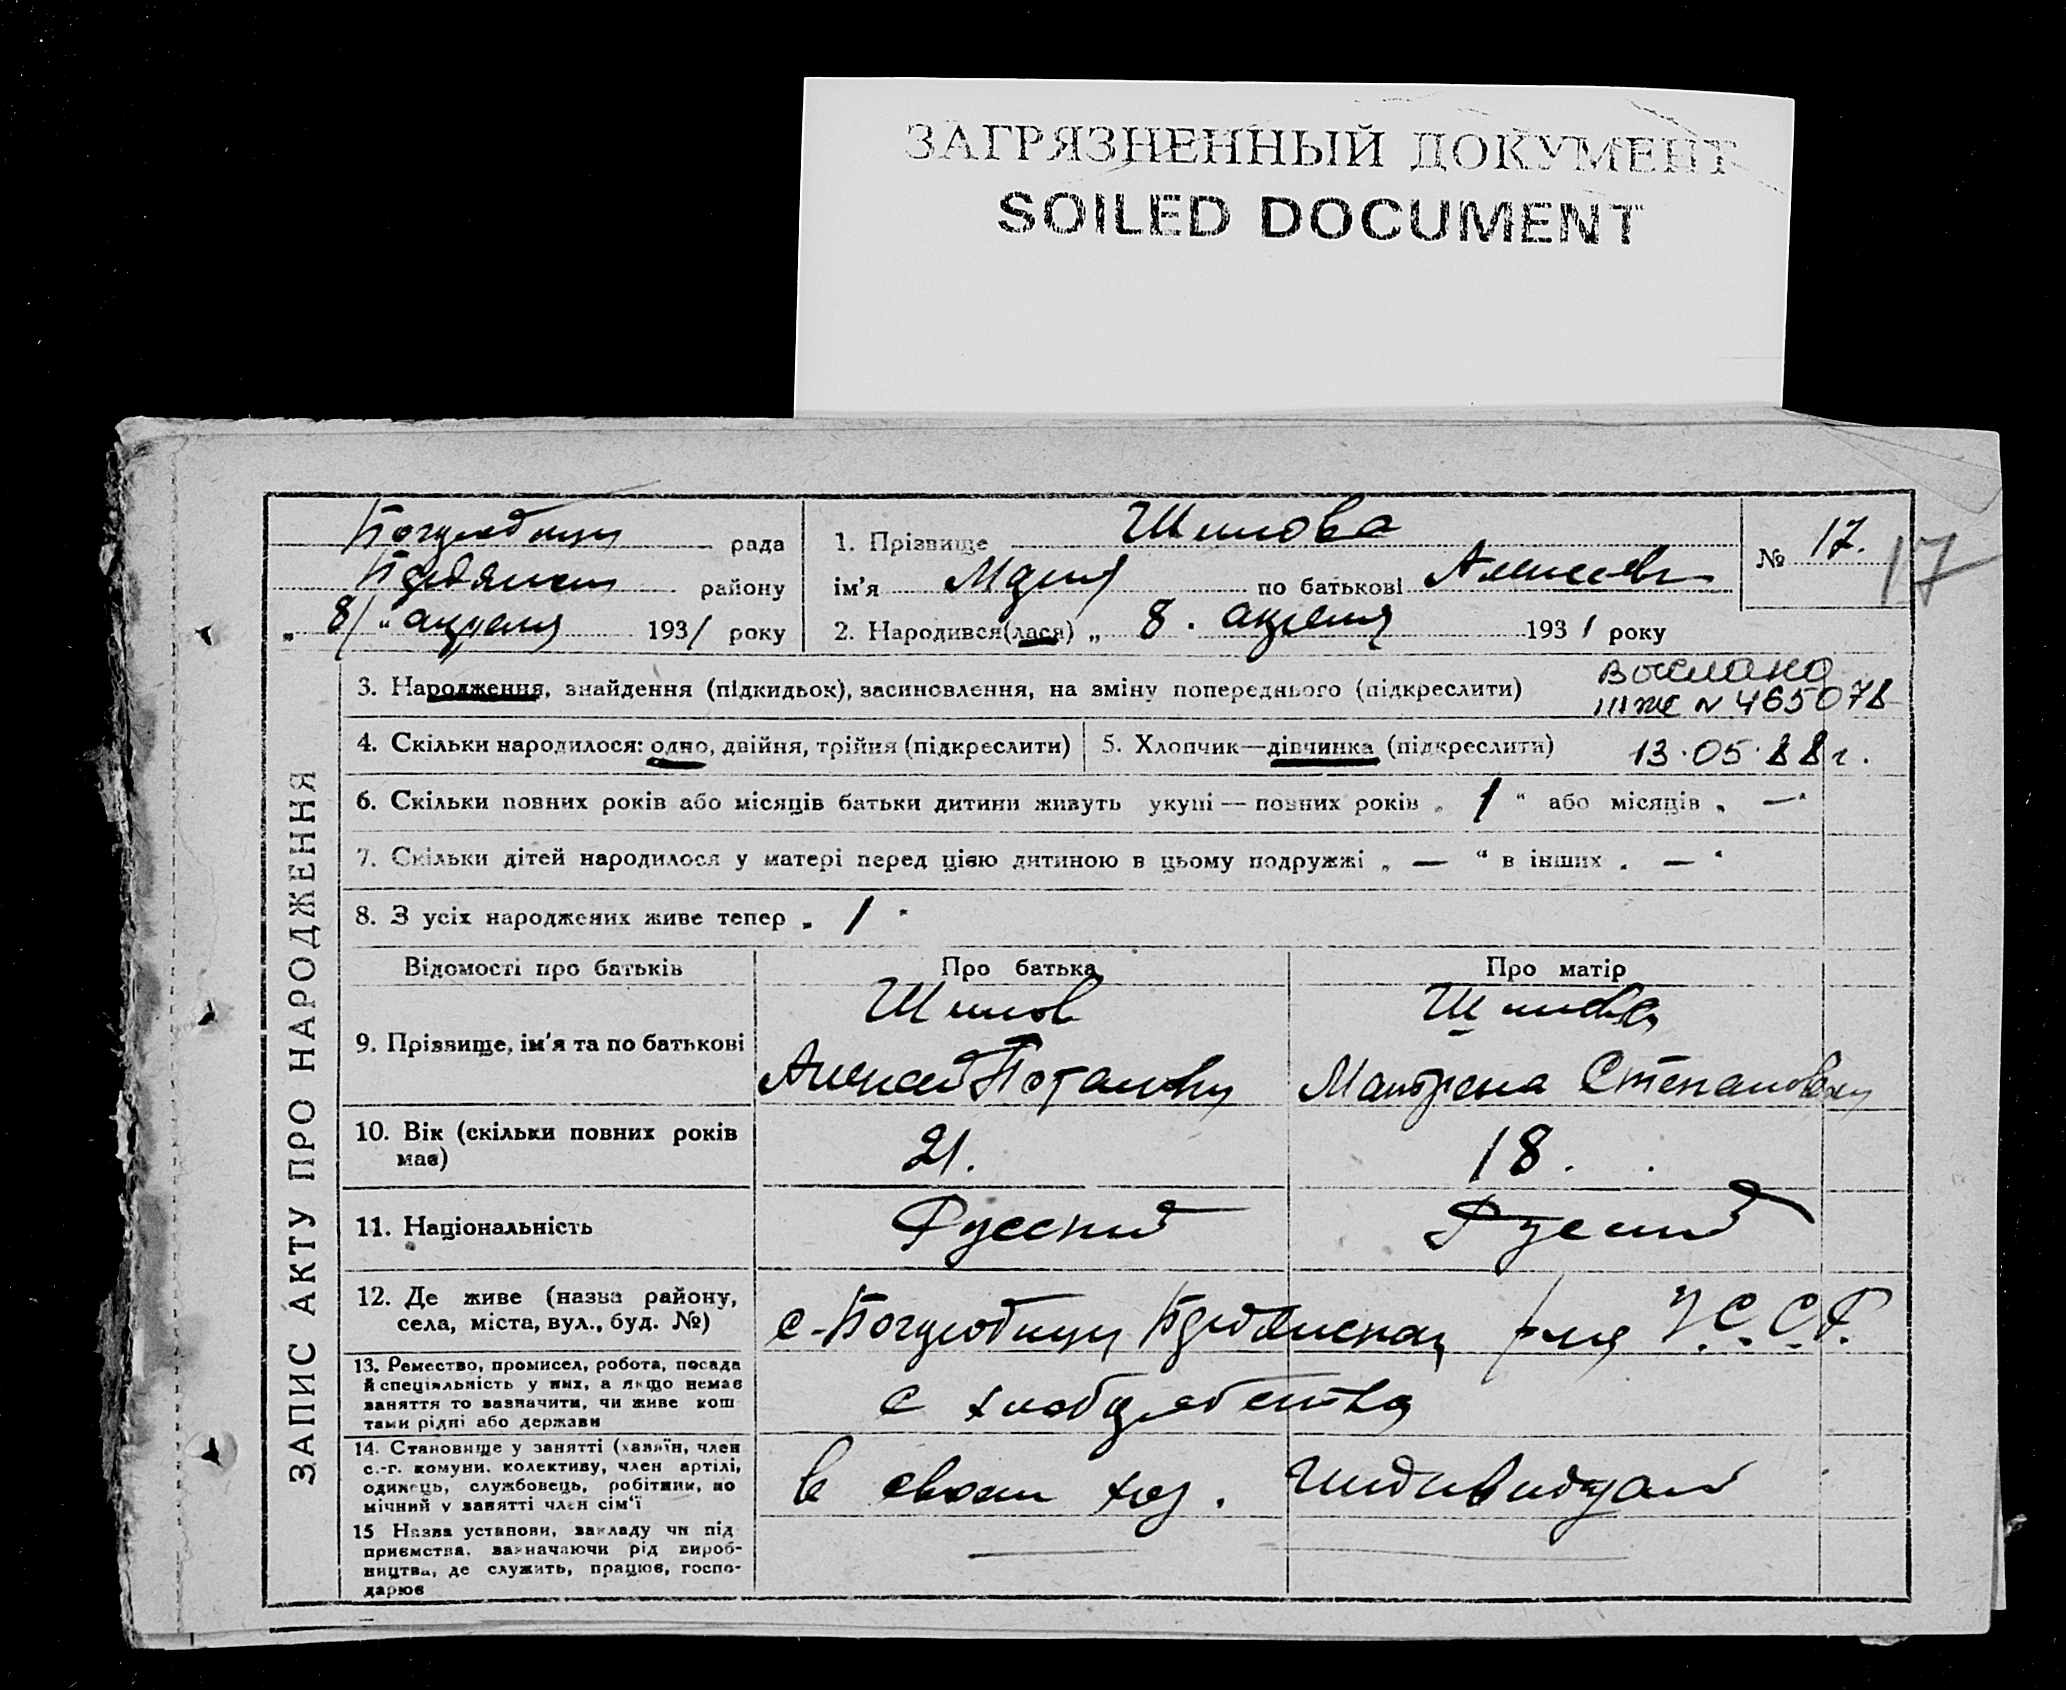 ЗАГРЯЗНЕННЫЙ ДОКУМЕНТ
SOILED DOCUMENT
рада
району
„ 8/ " апреля 1931 року
1. Прізвище Шилова
ім'я Мария по батькові
2. Народився(лася) „ 8. апреля 1931 року
№ 17.
17
3. Народження, знайдення (підкидьок), засиновлення, на зміну попереднього (підкреслити)
№ 465078
4. Скільки народилося: одно, двійня, трійня (підкреслити)
5. Хлопчик—дівчинка (підкреслити)
13.05.88г.
6. Скільки повних років або місяців батьки дитини живуть укупі — повних років „ 1 " або місяців „ — "
7. Скільки дітей народилося у матері перед цією дитиною в цьому подружжі „ — " в інших „ — "
8. З усіх народжених живе тепер „ 1 "
ЗАПИС АКТУ ПРО НАРОДЖЕННЯ
Відомості про батьків
Про батька
Про матір
9. Прізвище, ім'я та по батькові
Шилов
Алексей
Шилова
Степановна
10. Вік (скільки повних років має)
21.
18.
11. Національність
Русский
12. Де живе (назва району, села, міста, вул., буд. №)
с.
У.С.С.Р.
13. Ремество, промисел, робота, посада
й спеціяльність у них, а якщо немає
заняття то зазначити, чи живе кош
тами рідні або держави
с хлебопашества
14. Становище у занятті (хазяїн, член
с.-г. комуни, колективу, член артілі,
одинець, службовець, робітник, по
мічний у занятті член сім'ї
в своем хоз.
15 Назва установи, закладу чи під
приємства, зазначаючи рід вироб-
ництва, де служить, працює, госпо-
дарює